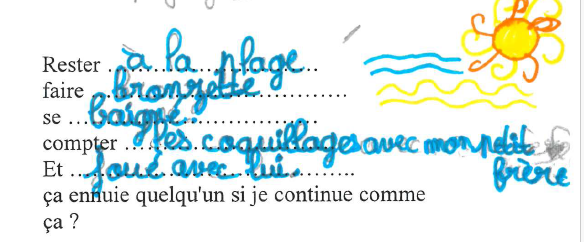 Rester à la plage
faire bronzette
se baigné.
compter les coquillages avec mon petit frère
Et joué avec lui.
ça ennuie quelqu'un si je continue comme
ça ?